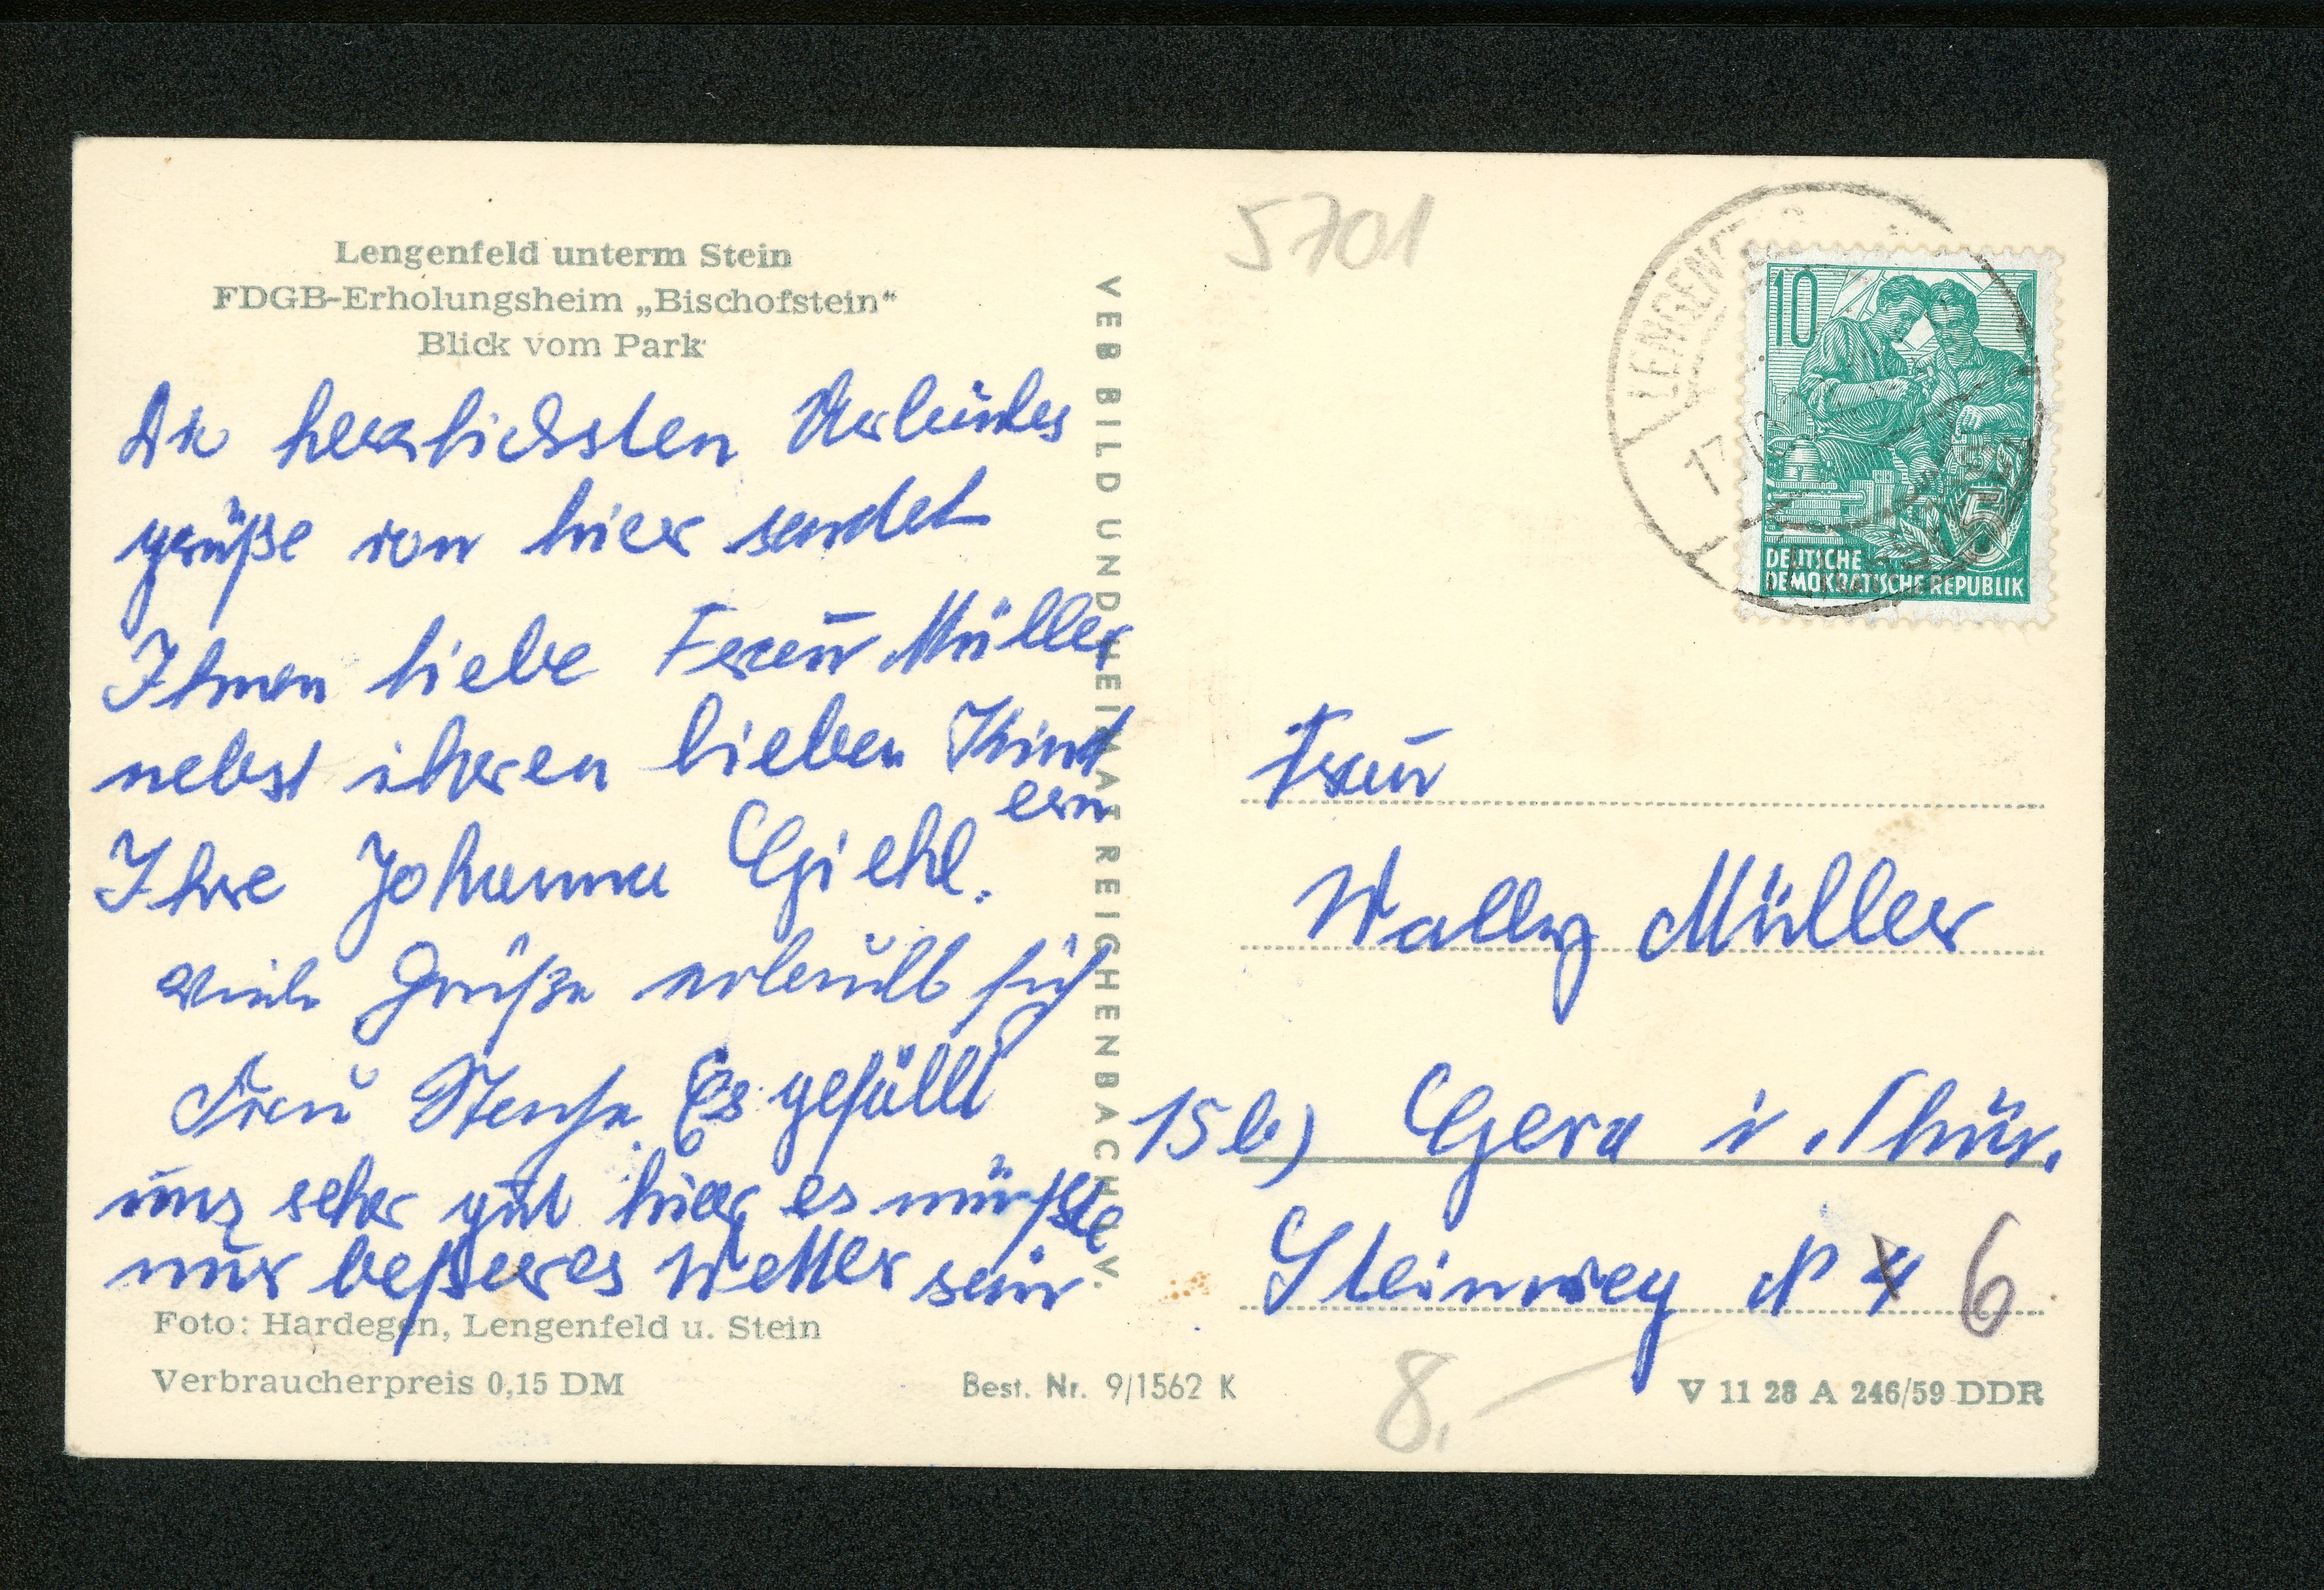 Lengenfeld unterm Stein
FDGB-Erholungsheim „Bischofstein“
Blick vom Park
Die herzlichsten Urlaubes
grüße von hier sendet
Ihnen liebe Frau Müller
nebst ihren lieben Kind
ern
Ihre Johanna Giehl.
Viele Grüße erlaubt sich
Frau
Es gefällt
uns sehr gut hier es müßte
nur beßeres Wetter sein
Foto: Hardegen, Lengenfeld u. Stein
Verbraucherpreis 0,15 DM
Best. Nr. 9/1562 K
VEB BILD UND HEIMAT REICHENBACH I. V.
5701
LENGENF
17
10
5
DEUTSCHE
DEMOKRATISCHE REPUBLIK
Frau
Wally Müller
15b) Gera i. Thür.
Steinweg N 4 6
8.–
V 11 28 A 246/59 DDR